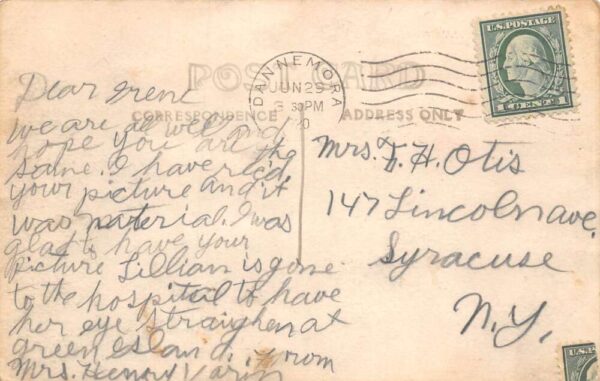 U.S. POSTAGE
1 CENT 1
POST CARD
DANNEMORA
JUN 29
3 30 PM
CORRESPONDENCE
ADDRESS ONLY
Dear Irene
we are all well and
hope you are the
same. I have rec'd
your picture and it
was material. I was
glad to have your
picture Lillian is gone
to the hospital to have
her eye straighen at
green Islan from
Mrs. Henry
Mrs. F. H. Otis
147 Lincoln ave.
Syracuse
N.Y.